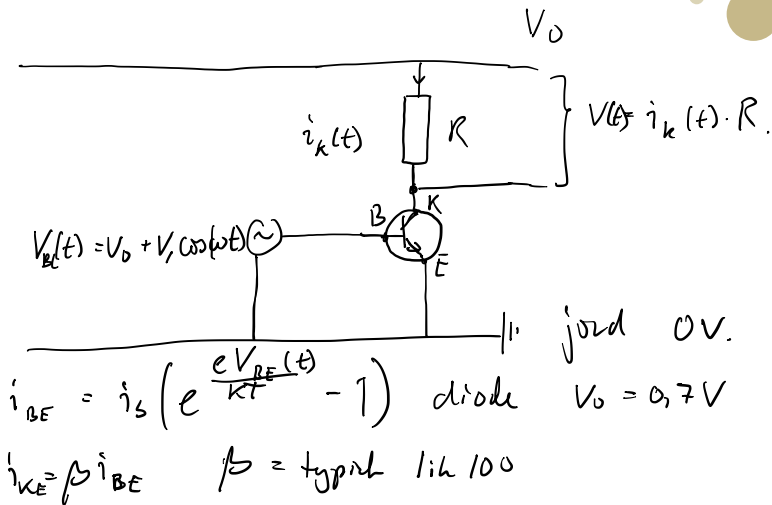 V₀
i_k(t) R V(t) = i_k(t) · R.
B K
V_BE(t) = V₀ + V₁ cos(ωt) ~
E
jord 0V.
i_BE = i_s ( e^(eV_BE(t)/KT) - 1 ) diode V₀ = 0,7V
i_KE = β i_BE β = typisk lik 100